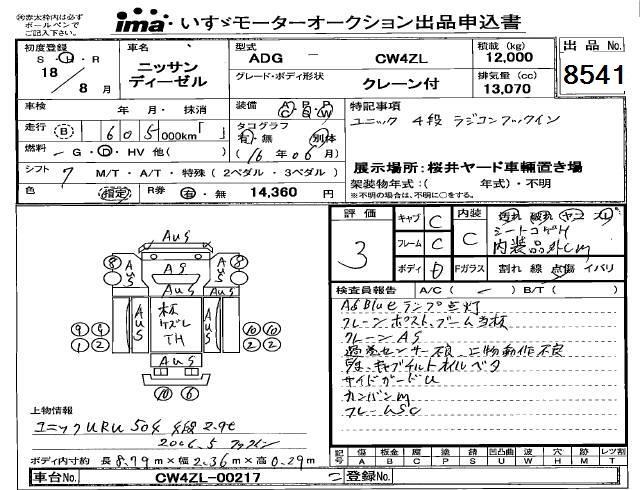 ※赤太枠内は必ず
ボールペンで
ご記入下さい。
ima いすゞモーターオークション出品申込書
初度登録 S・H・R 18 / 8 月
車名 ニッサン ディーゼル
型式 ADG － CW4ZL
積載 (kg) 12,000
出品 No. 8541
グレード・ボディ形状 クレーン付
排気量 (cc) 13,070
車検 年・月・抹消
装備 A/C P/S P/W
特記事項
走行 (B) 605 000km「 」
タコグラフ 有・無 別体
(16年06月)
ユニック 4段 ラジコン フックイン
燃料 － G・D・HV 他( )
シフト 7 M/T・A/T・特殊(2ペダル・3ペダル)
展示場所:桜井ヤード車輛置き場
架装物年式:( 年式)・不明
※不明の場合は、不明に○をする。
色 指定 R券 有・無 14,360 円
評価 3
キャブ C
フレーム C
ボディ D
内装 C
シートコゲH
内装品外Cm
Fガラス 割れ 線 点傷 イバリ
検査員報告 A/C( － ) B/T( )
AdBlueランプ点灯
クレーンポスト、ブーム当板
クレーンAS
過巻センサー不良、上物動作不良
キャブチルトオイルベタ
サイドガードU
カンバンM
フレームSC
AUS
AS
AUS
AUS
AUS
AUS
板
ケズレ
TH
AUS
8
8
9 9
1 2
10 10
2 2
10 6
上物情報
ユニックURU504 4段 2.9t
2006.5 フックイン
ボディ内寸約 長8.79m×幅2.36m×高0.29m
記号 傷 A 板金 B 腐 C 塗 P 錆 S 凹凸曲 U 波 W 穴 H 跡 M レツ割 T
車台No. CW4ZL-00217
登録No.